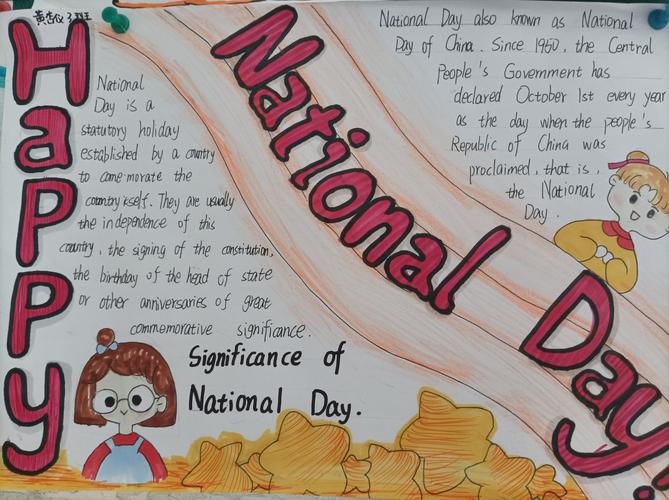 3班
Happy
National Day
National
Day is a
statutory holiday
established by a country
to come-morate the
country itself. They are usually
the independence of this
country, the signing of the constitution,
the birthday of the head of state
or other anniversaries of great
commemorative significance.
Significance of
National Day.
National Day also known as National
Day of China. Since 1950, the Central
People's Government has
declared October 1st every year
as the day when the people's
Republic of China was
proclaimed, that is,
the National
Day.